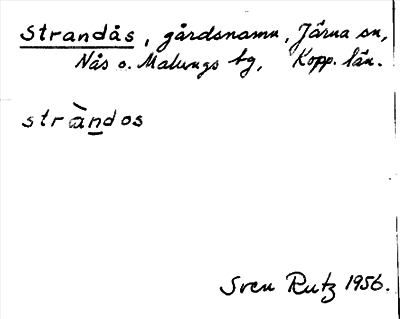 Strandås, gårdsnamn, Järna sn,
Nås o. Malungs tg, Kopp. län.
stràndos
Sven Rutz 1956.